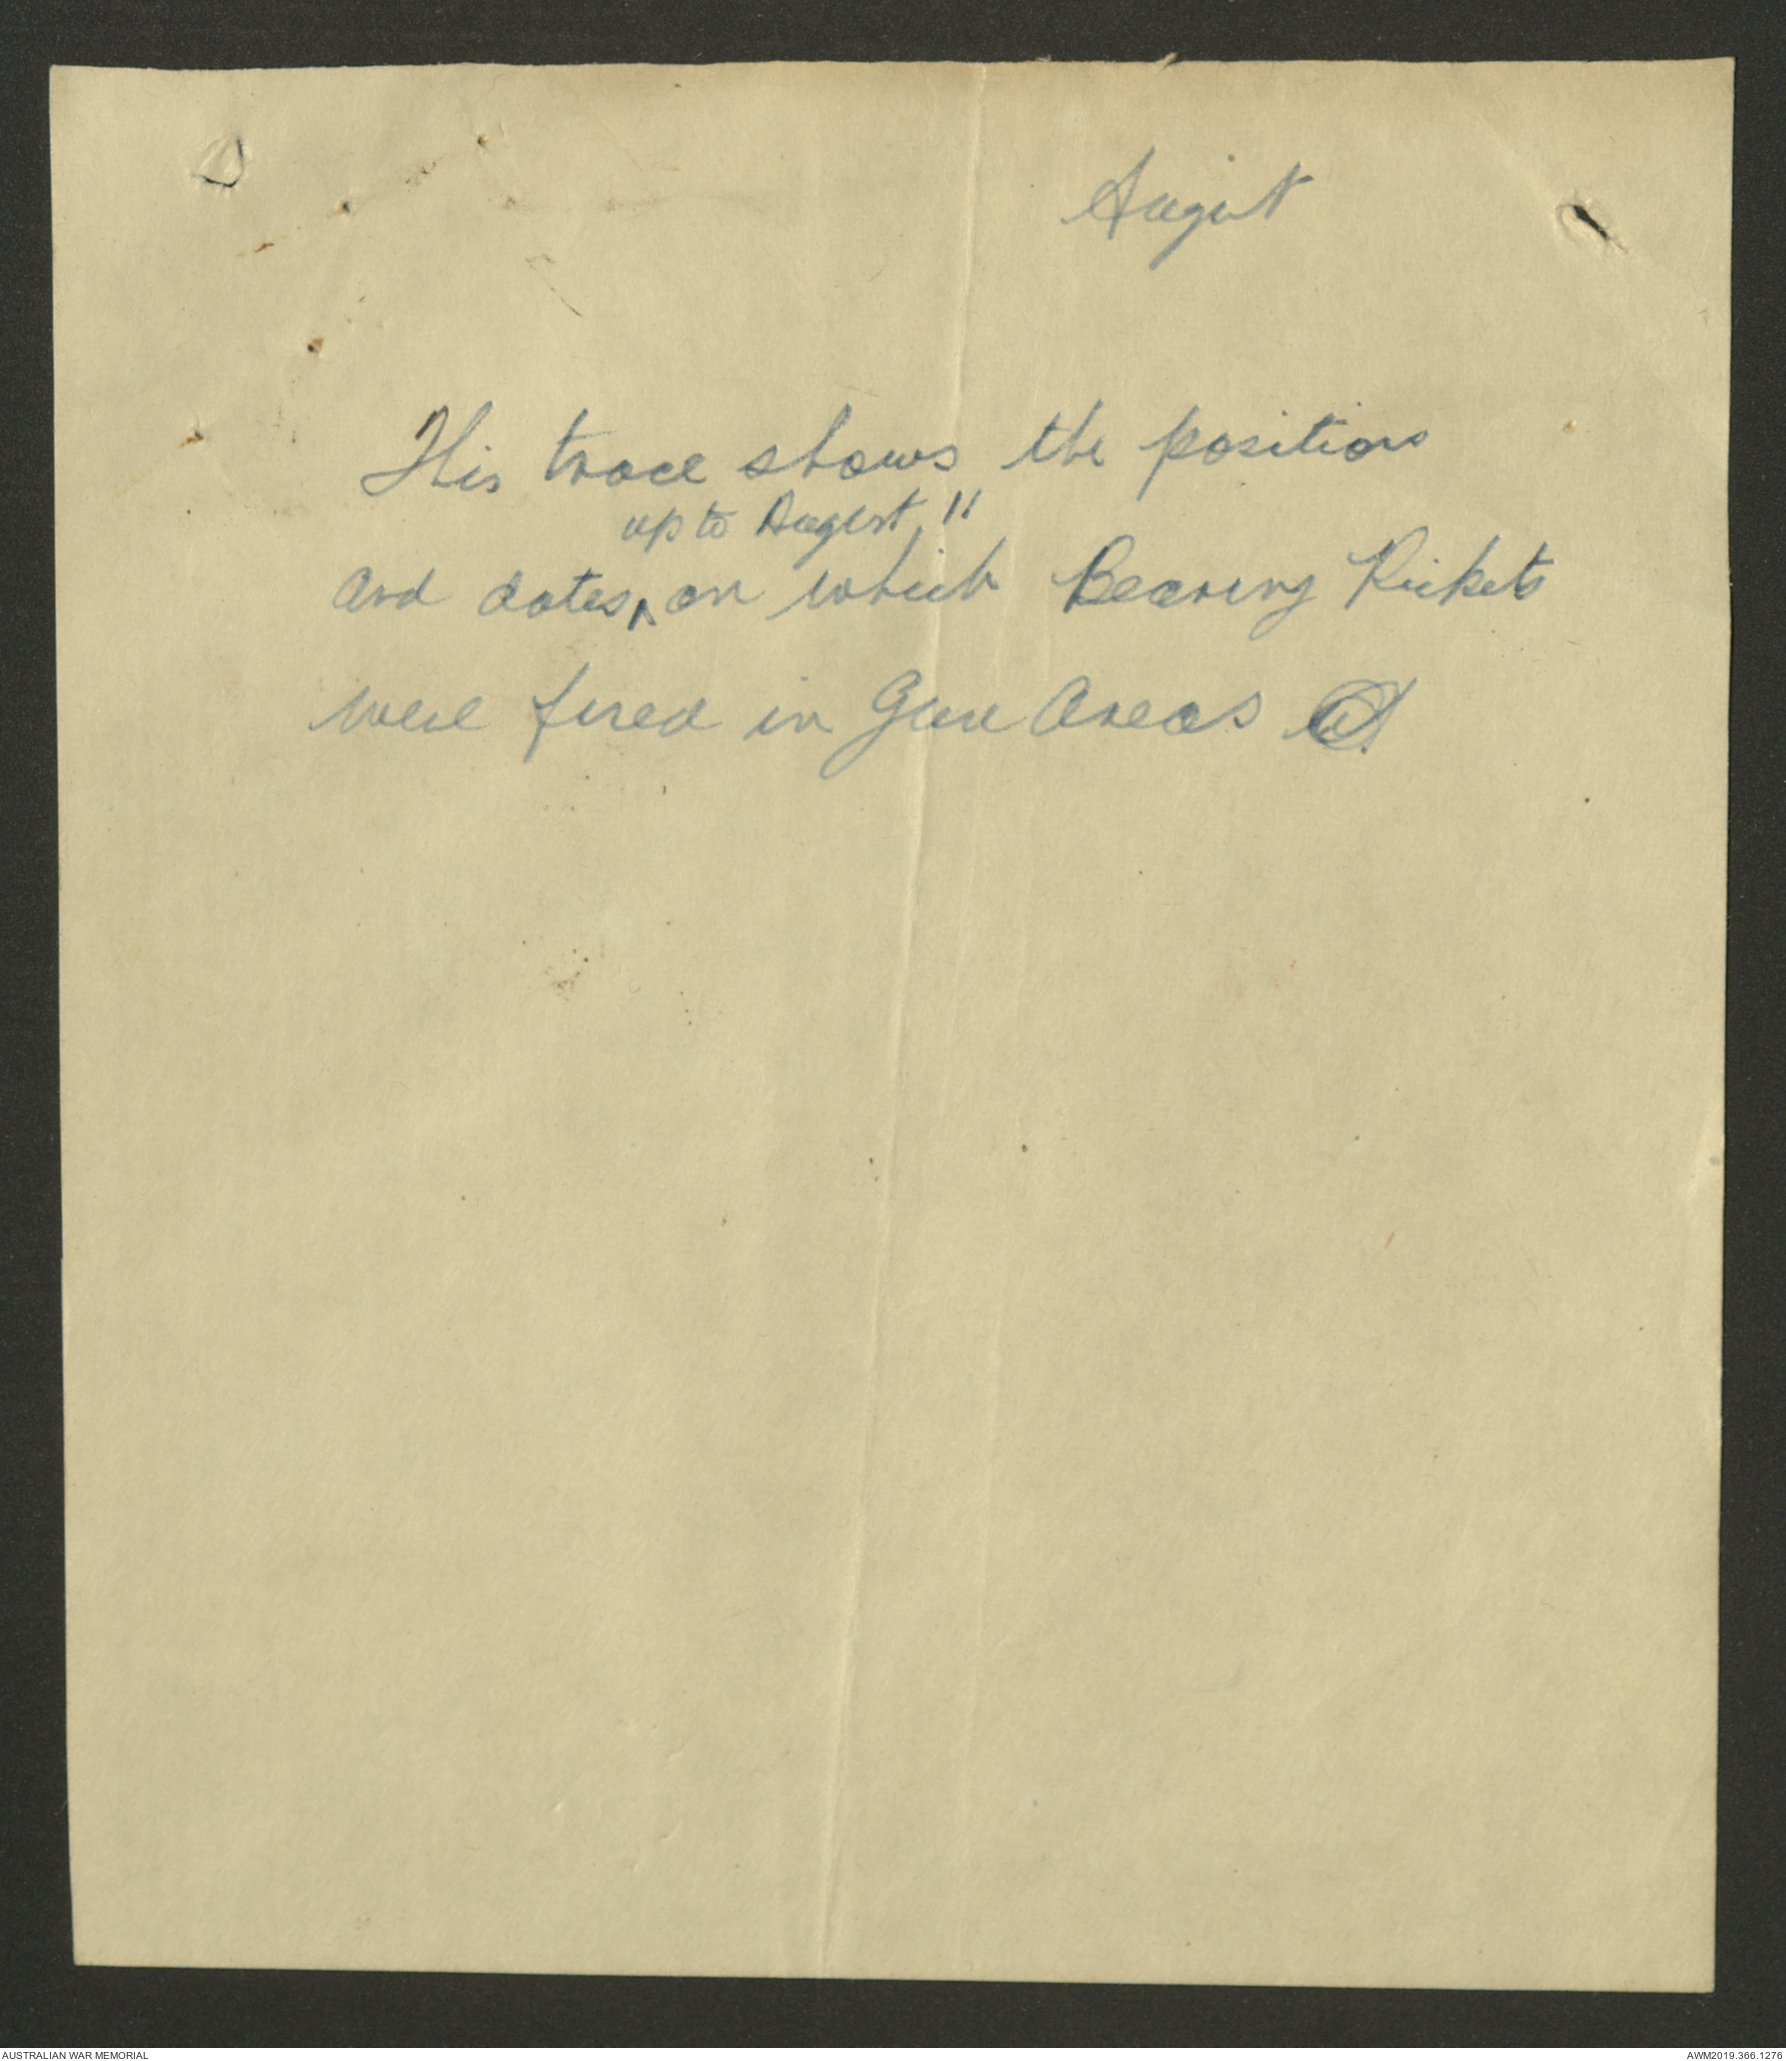 August
This trace shows the positions
up to August 11
and dates ^ on which Bearing Pickets
were fixed in Gun Areas
AUSTRALIAN WAR MEMORIAL
AWM2019.366.1276